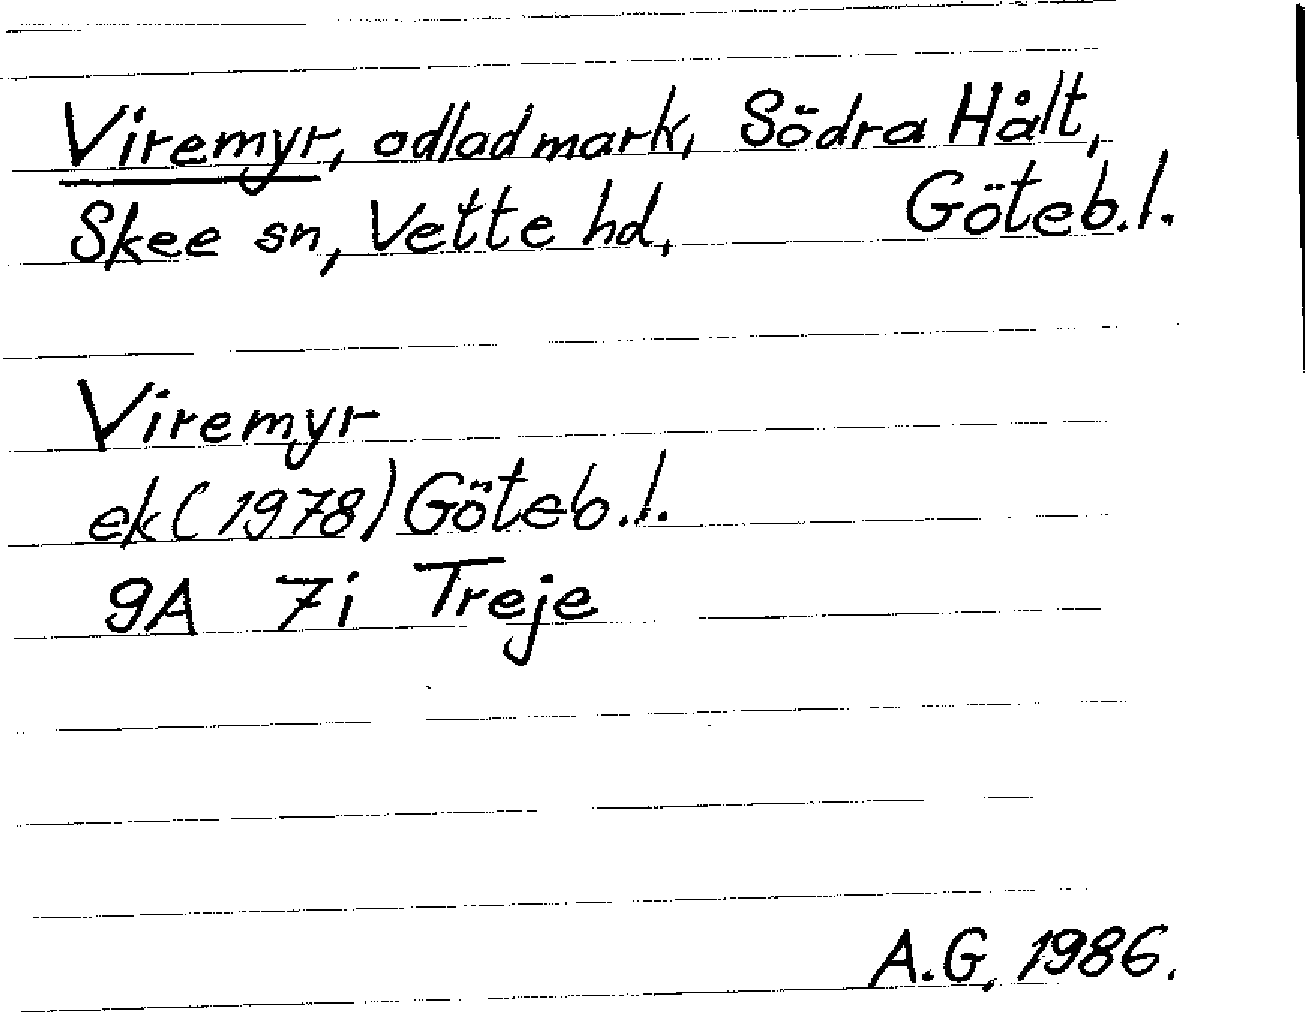 Viremyr, odlad mark, Södra Hålt,
Skee sn, Vette hd, Göteb. l.
Viremyr
ek (1978) Göteb. l.
9A 7i Treje
A.G, 1986.